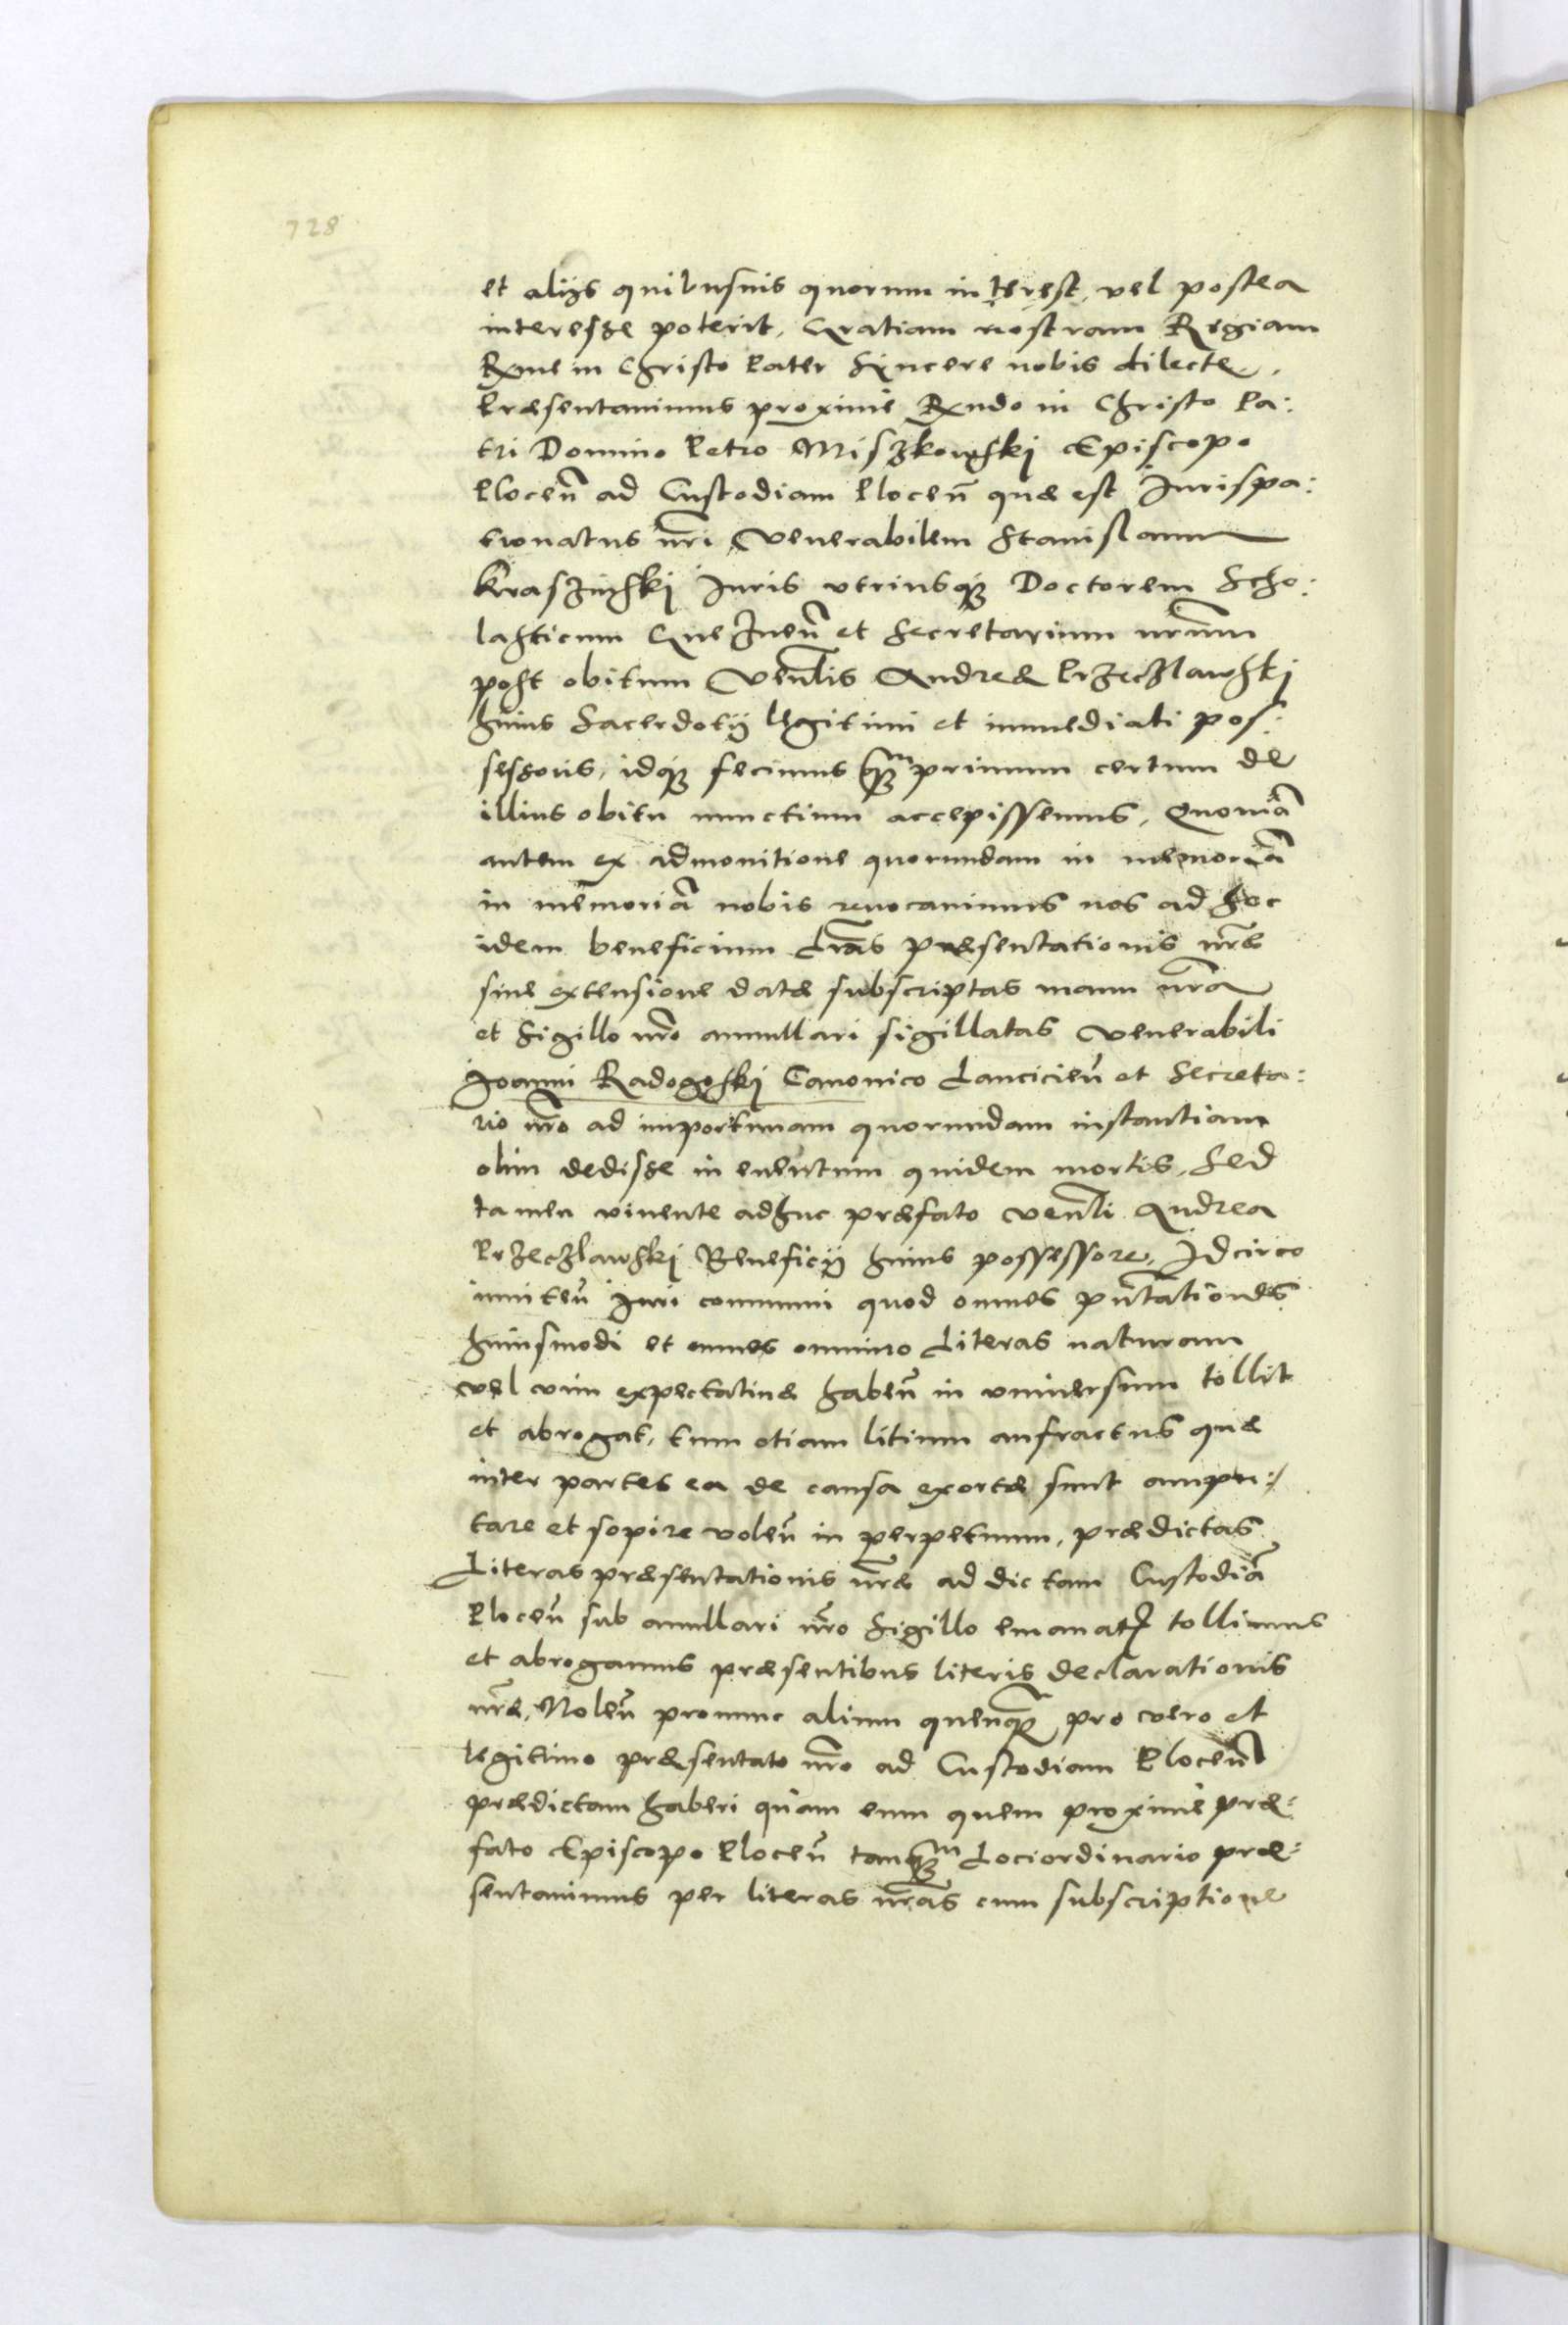 728
et alijs quibusuis quorum interest, vel postea
interesse poterit, Gratiam nostram Regiam
Rx̃me in Christo Pater Syncere nobis dilecte.
Præsentauimus proximè Rx̃ndo in Christo Pa:
tri Domino Petro Miszkowski Episcopo
Plocen̄ ad Custodiam Plocen̄ quæ est Jurispa:
tronatus nr̄i Venerabilem Stanislaum
Kraszinski Juris vtriusq3 Doctorem Scho:
lasticum GnezNen̄ et Secretarium nr̄um
post obitum Ven̄lis Andreæ Przeczlawski
huius Sacerdotij legitimi et immediati pos:
sessoris, idq3 fecimus q3m primum certum de
illius obitu nunctium accepissemus, Quoniā
autem ex admonitione quorundam in memoriā
in memoriā nobis reuocauimus nos ad hoc
idem beneficium L̄ras præsentationis nr̄æ
sine extensione datæ subscriptas manu nr̄a
et Sigillo nr̄o annullari sigillatas Venerabili
Joanni Radogoski Canonico Lancicien̄ et Secreta:
rio nr̄o ad importunam quorundam instantiam
olim dedisse in euentum quidem mortis, Sed
tamen viuente adhuc præfato Ven̄li Andrea
Przeczlawski Beneficij huius possessore, Idcirco
inniten̄ Juri communi quod omnes pn̄tationes
huiusmodi et omnes omnino Literas naturam
vel vim expectatiuæ haben̄ in vniuersum tollit
et abrogat, tum etiam litium anfractus quæ
inter partes ea de causa exortæ sunt ampu:
tare et sopire volen̄ in perpetuum, prædictas
Literas præsentationis nr̄æ ad dictam Custodiā
Plocen̄ sub anullari nr̄o Sigillo emanat. tollimus
et abrogamus præsentibus literis declarationis
nr̄æ, Nolen̄ pronunc alium quenq3 pro vero et
legittimo præsentato nr̄o ad Custodiam Plocen̄
prædictam haberi quàm eum quem proximè præ:
fato Episcopo Plocen̄ tanq3m Lociordinario præ:
sentauimus per literas nr̄as cum subscriptione